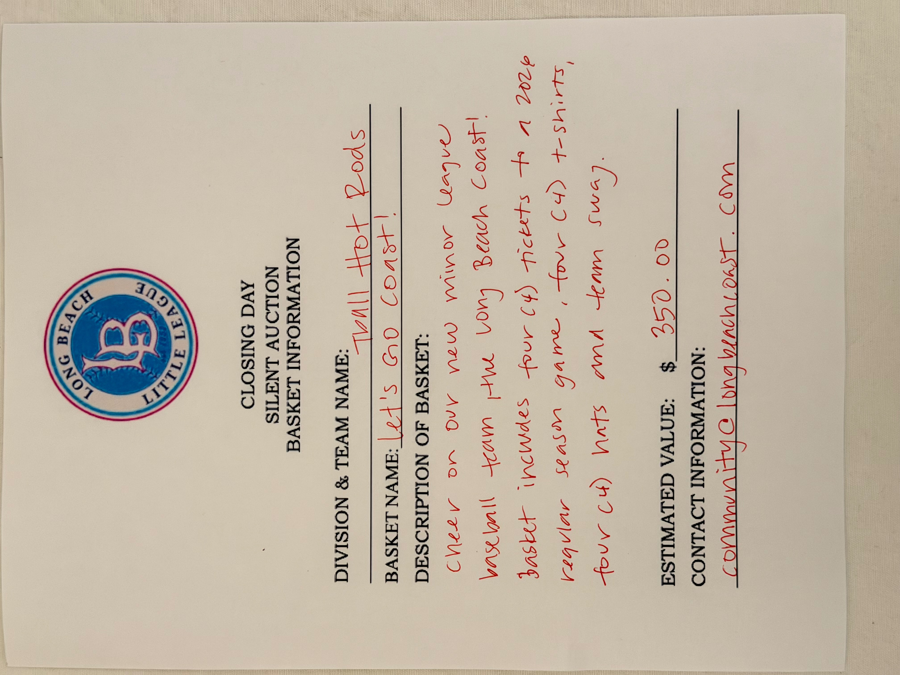 LONG BEACH
LB
LITTLE LEAGUE
CLOSING DAY
SILENT AUCTION
BASKET INFORMATION
DIVISION & TEAM NAME:
Tball Hot Rods
BASKET NAME: Let's GO Coast!
DESCRIPTION OF BASKET:
Cheer on our new minor league
baseball team, the Long Beach Coast!
Basket includes four (4) tickets to a 2026
regular season game, four (4) t-shirts,
four (4) hats and team swag.
ESTIMATED VALUE: $ 350.00
CONTACT INFORMATION:
community@longbeachcoast.com